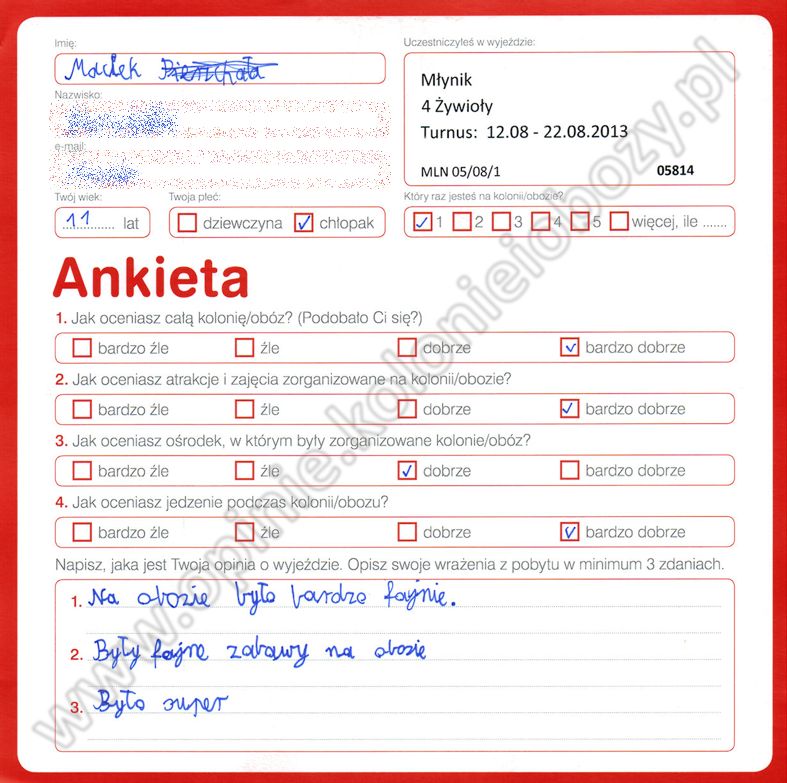 Imię:
Uczestniczyłeś w wyjeździe:
Maciek
Młynik
4 Żywioły
Turnus: 12.08 - 22.08.2013
MLN 05/08/1 05814
Nazwisko:
e-mail:
Twój wiek:
Twoja płeć:
Który raz jesteś na kolonii/obozie?
11 lat
dziewczyna chłopak
1 2 3 4 5 więcej, ile .......
Ankieta
1. Jak oceniasz całą kolonię/obóz? (Podobało Ci się?)
bardzo źle źle dobrze bardzo dobrze
2. Jak oceniasz atrakcje i zajęcia zorganizowane na kolonii/obozie?
bardzo źle źle dobrze bardzo dobrze
3. Jak oceniasz ośrodek, w którym były zorganizowane kolonie/obóz?
bardzo źle źle dobrze bardzo dobrze
4. Jak oceniasz jedzenie podczas kolonii/obozu?
bardzo źle źle dobrze bardzo dobrze
Napisz, jaka jest Twoja opinia o wyjeździe. Opisz swoje wrażenia z pobytu w minimum 3 zdaniach.
1. Na obozie było bardzo fajnie.
2. Były fajne zabawy na obozie
3. Było super
www.opinie.kolonieiobozy.pl